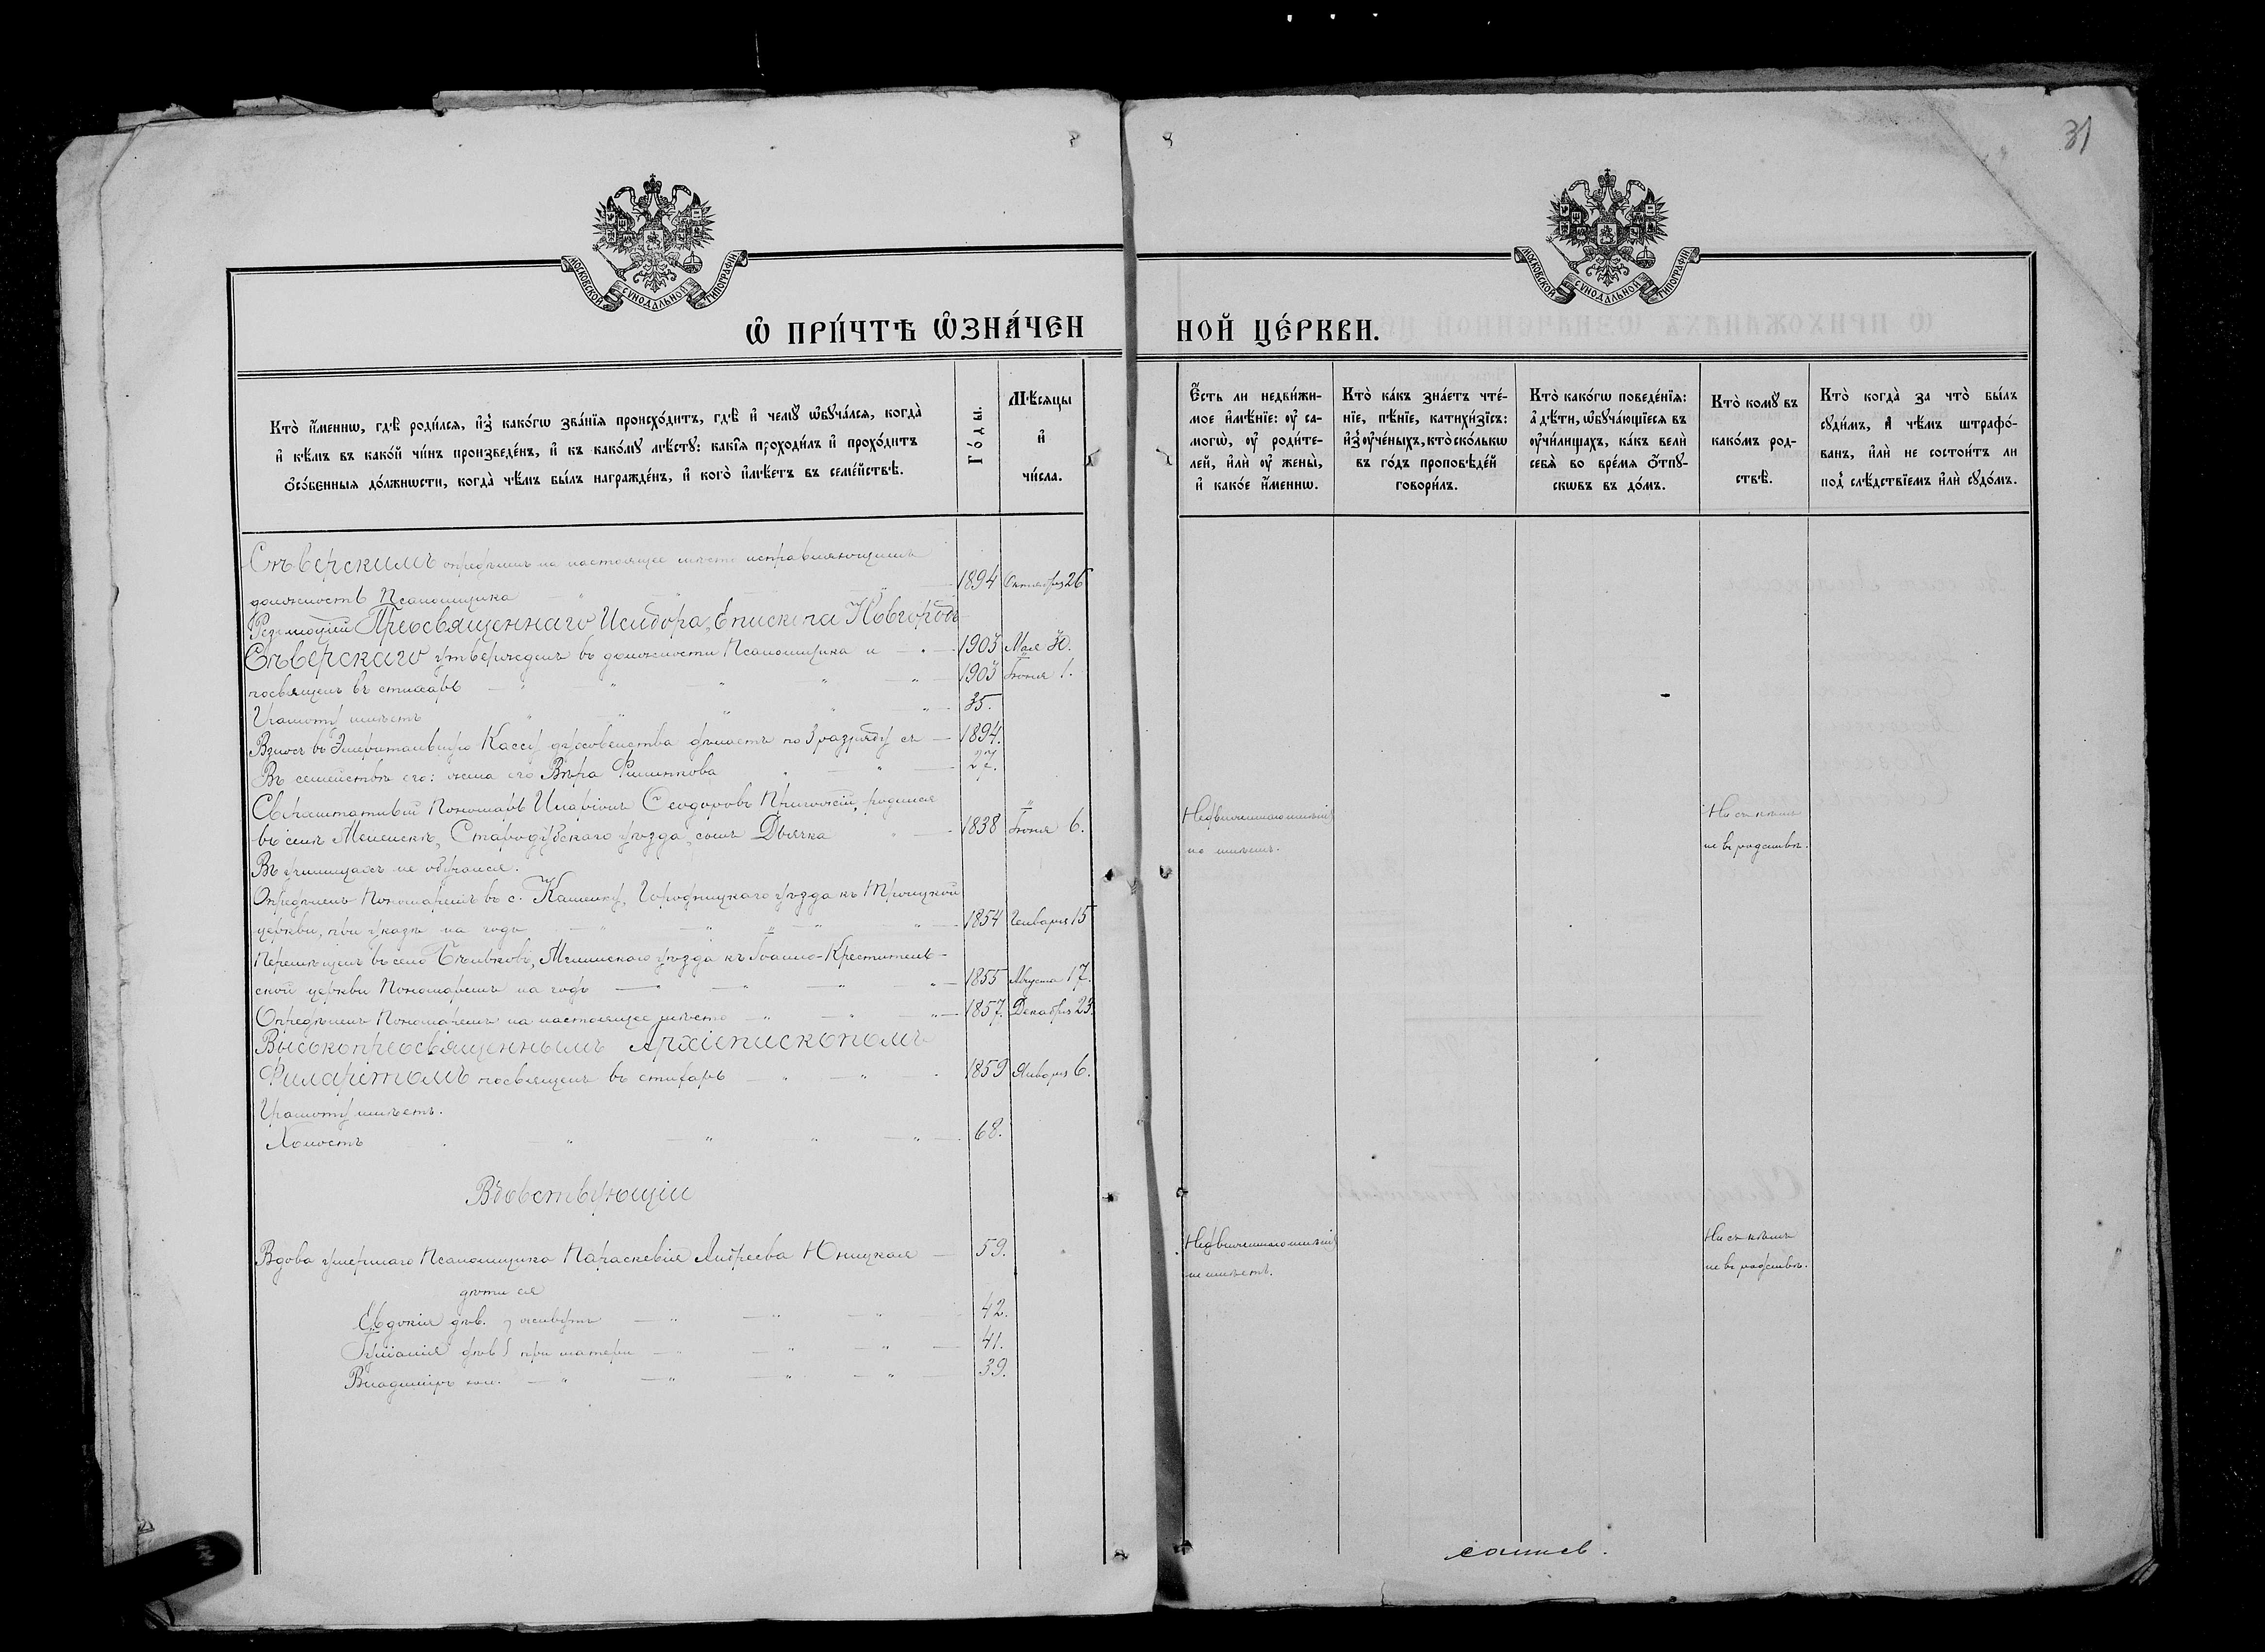 31
МОСКОВСКОЙ СѴНОДАЛЬНОЙ ТИПОГРАФІИ
МОСКОВСКОЙ СѴНОДАЛЬНОЙ ТИПОГРАФІИ
Ѡ ПРИ́ЧТѢ ѠЗНА́ЧЕН НОЙ ЦЕ́РКВИ.
Кто̀ и҆́меннѡ, гдѣ̀ роди́лся, и҆з̾ како́гѡ зва́нїѧ происхо́дитъ, гдѣ̀ и҆ чемꙋ̀ ѡ҆бꙋча́лся, когда̀
и҆ кѣ́мъ въ како́й чи́нъ произведе́нъ, и҆ къ како́мꙋ мѣ́стꙋ: какі̑ѧ проходи́лъ и҆ прохо́дитъ
ѻ҆со́бенныя до́лжнѡсти, когда̀ чѣ́мъ бы́лъ награжде́нъ, и҆ кого̀ и҆мѣ́етъ въ семе́йствѣ.
Го́ды.
Мѣ́сяцы
и҆
чи́сла.
Є҆́сть ли недви́жи-
мое и҆мѣ́нїе: ᲂу҆ са-
могѡ̀, ᲂу҆ роди́те-
лей, и҆лѝ ᲂу҆ жены̀,
и҆ како́е и҆́меннѡ.
Кто̀ ка́къ зна́етъ чте́-
нїе, пѣ́нїе, катихи́зїсъ:
и҆з̾ ᲂу҆че́ныхъ, кто̀ ско́лькѡ
въ го́дъ проповѣ́дей
говори́лъ.
Кто̀ како́гѡ поведе́нїѧ:
а҆ дѣ́ти, ѡ҆бꙋча́ющїеся въ
ᲂу҆чи́лищахъ, ка́къ велѝ
себѧ̀ во вре́мя ѿпꙋ-
скѡвъ въ до́мъ.
Кто̀ комꙋ̀ въ
како́мъ род-
ствѣ̀.
Кто̀ когда̀ за что̀ бы́лъ
сꙋди́мъ, и҆ чѣ́мъ штрафо́-
ванъ, и҆лѝ не состои́тъ ли
под̾ слѣ́дствїемъ и҆лѝ сꙋдо́мъ.
Сѣверскимъ опредѣленъ на настоящее мѣсто исправляющимъ
должность Псаломщика 1894 Октября 26
Резолюціей Преосвященнаго Исидора, Епископа Новгородъ-
Сѣверскаго утвержденъ въ должности Псаломщика и 1903 Мая 30.
посвященъ въ стихарь 1903 Іюня 1.
Грамоту имѣетъ 35.
Взносъ въ Эмеритальную Кассу духовенства дѣлаетъ по 3 разряду съ 1894.
Въ семействѣ его: жена его Вѣра Филиппова 27.
Сверхштатный Пономарь Иларіонъ Ѳеодоровъ Пригоровскій, родился
въ селѣ Меленскѣ, Стародубскаго уѣзда, сынъ Дьячка 1838 Іюня 6.
Недвижимаго имѣнія
не имѣетъ.
Ни съ кѣмъ
не въ родствѣ.
Въ училищахъ не обучался.
Опредѣленъ Пономаремъ въ с. Каменку, Городницкаго уѣзда къ Троицкой
церкви, при указѣ на годъ 1854 Генваря 15
Перемѣщенъ въ село Бѣлевковъ, Мглинскаго уѣзда къ Іоанно-Креститель-
ской церкви Пономаремъ на годъ 1855 Августа 17.
Опредѣленъ Пономаремъ на настоящее мѣсто 1857. Декабря 23.
Высокопреосвященнымъ Архіепископомъ
Филаретомъ посвященъ въ стихарь 1859 Января 6.
Грамоту имѣетъ.
Холостъ 68.
Вдовствующіи
Вдова умершаго Псаломщика Параскевія Андреева Юницкая 59.
Недвижимаго имѣнія
не имѣетъ.
Ни съ кѣмъ
не въ родствѣ.
дѣти ея
Евдокія дѣв. живутъ 42.
Іуліанія дѣв. при матери 41.
Владиміръ хол. 39.